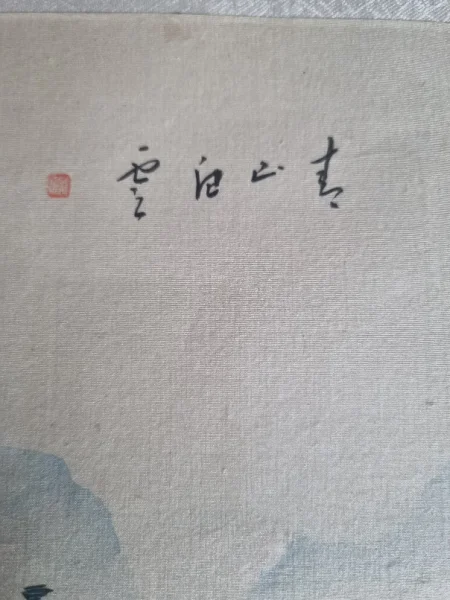 青山白雲